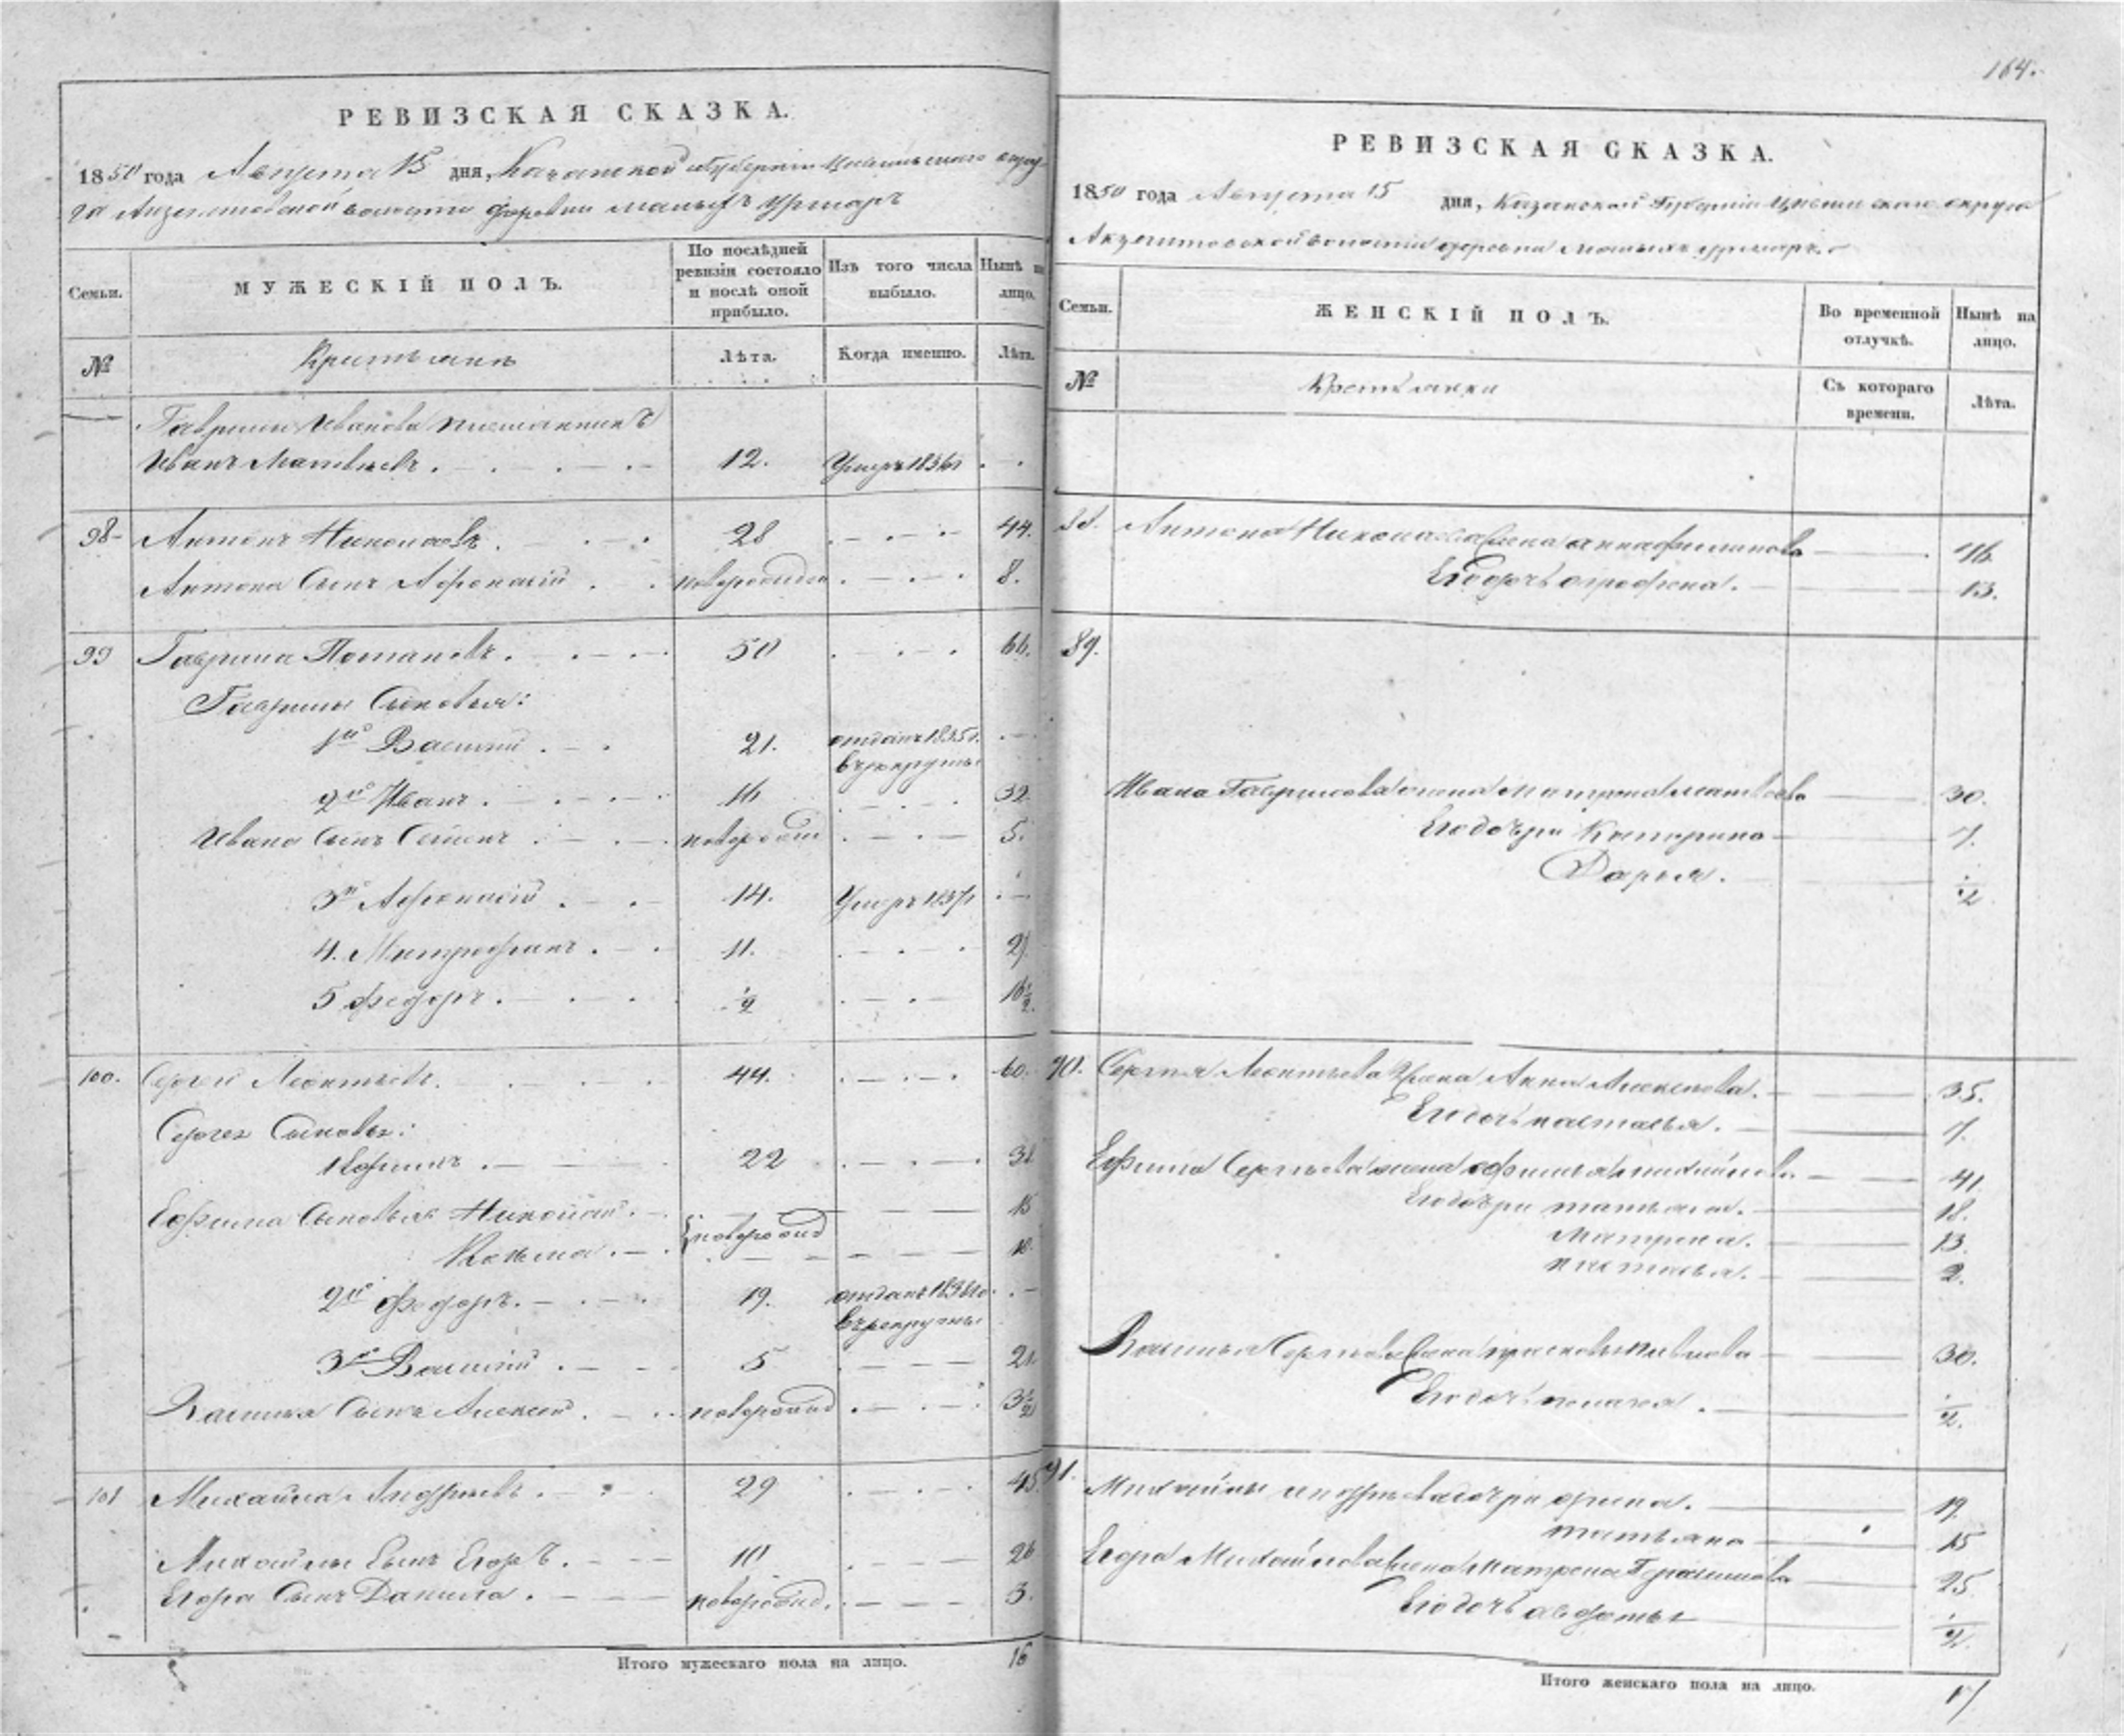 РЕВИЗСКАЯ СКАЗКА.
1850 года Августа 15 дня, Казанской Губернiи Цивильскаго окру-
га волости деревни малыхъ Урмаръ
Семьи.
МУЖЕСКIЙ ПОЛЪ.
По послѣдней ревизiи состояло и послѣ оной прибыло.
Изъ того числа выбыло.
Нынѣ на лицо.
№
Крестьянъ
Лѣта.
Когда именно.
Лѣта.
Гаврилы Иванова племянникъ
Иванъ Матвѣевъ. 12. Умеръ
98 Антонъ Николаевъ. 28 44.
Антона Сынъ Афонасiй новорожден 8.
99 Гаврила Потаповъ. 50 66.
Гаврилы Сыновья:
1й Василiй. 21. отданъ 1835г.
въ рекруты
2й Иванъ. 16 32.
Ивана Сынъ Семенъ новорожд 5.
3й Афонасiй. 14. Умеръ
4. Митрофанъ. 11. 27
5 Федоръ. ½ 16½.
100. Сергей Леонтьевъ. 44. 60.
Сергея Сыновья:
1 Ефимъ. 22 38
Ефима Сыновья: Николай. 15
новорожд
Козьма. 10.
2й Федоръ. 19. отданъ
въ рекруты
3й Василiй. 5 21.
Василья Сынъ Алексей. новорожд 3½
101 Михайла Андреевъ. 29 45.
Михайлы Сынъ Егоръ. 10 26
Егора Сынъ Данила. новорожд. 3.
Итого мужескаго пола на лицо. 16
164.
РЕВИЗСКАЯ СКАЗКА.
1850 года Августа 15 дня, Казанской Губернiи Цивильскаго округа
волости деревни Малыхъ Урмаръ.
Семьи.
ЖЕНСКIЙ ПОЛЪ.
Во временной отлучкѣ.
Нынѣ на лицо.
№
Крестьянки
Съ котораго времени.
Лѣта.
Антона Николаева жена анна филипова 46.
Его дочь аграфена. 13.
89.
Ивана Гаврилова жена Матрена матвеева 30.
Его дочери Катерина 7.
Дарья. ½
90. Сергея Леонтьева жена Анна Алексеева. 35.
Его дочь настасья. 7.
Ефима Сергеева жена михайлова. 41.
Его дочери татьяна. 18.
Матрена. 13.
настасья. 2.
Василья Сергеева жена прасковья 30.
Его дочь ½.
91. Михайлы андреева дочери 19.
татьяна 15
Егора Михайлова жена матрена Герасимова 25.
Его дочь авдотья ½
Итого женскаго пола на лицо. 17